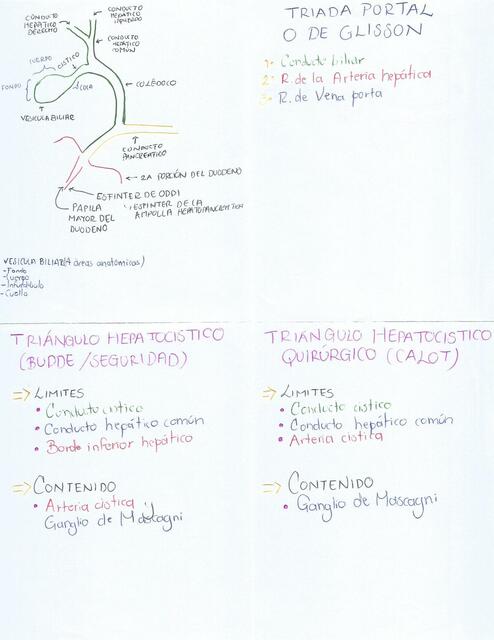 CONDUCTO
HEPÁTICO
DERECHO
CONDUCTO
HEPÁTICO
IZQUIERDO
CONDUCTO
HEPÁTICO
COMÚN
CUERPO
CISTICO
FONDO
COLÉDOCO
VESICULA BILIAR
CONDUCTO
PANCREATICO
2A PORCIÓN DEL DUODENO
ESFINTER DE ODDI
ESFINTER DE LA
AMPOLLA HEPATOPANCREATICA
PAPILA
MAYOR DEL
DUODENO
VESICULA BILIAR (4 áreas anatómicas)
-Fondo
-Cuerpo
-Infundibulo
-Cuello
TRIADA PORTAL
O DE GLISSON
1- Conducto biliar
2- R. de la Arteria hepática
3- R. de Vena porta
TRIÁNGULO HEPATOCISTICO
(BUDDE / SEGURIDAD)
⇒ LIMITES
• Conducto cistico
• Conducto hepático común
• Borde inferior hepático
⇒ CONTENIDO
• Arteria cistica y
Ganglio de Mascagni
TRIANGULO HEPATOCISTICO
QUIRÚRGICO (CALOT)
⇒ LIMITES
• Conducto cistico
• Conducto hepático común
• Arteria cistica
⇒ CONTENIDO
• Ganglio de Mascagni